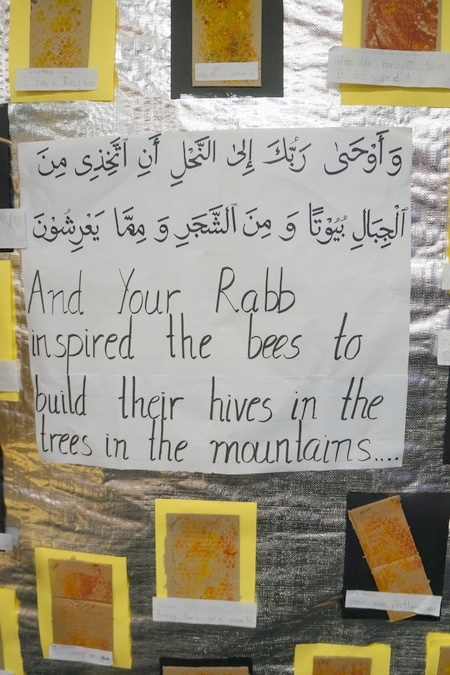 وَ أَوْحَىٰ رَبُّكَ إِلَى النَّحْلِ أَنِ اتَّخِذِى مِنَ
الْجِبَالِ بُيُوْتًا وَ مِنَ الشَّجَرِ وَ مِمَّا يَعْرِشُوْنَ
And Your Rabb
inspired the bees to
build their hives in the
trees in the mountains....